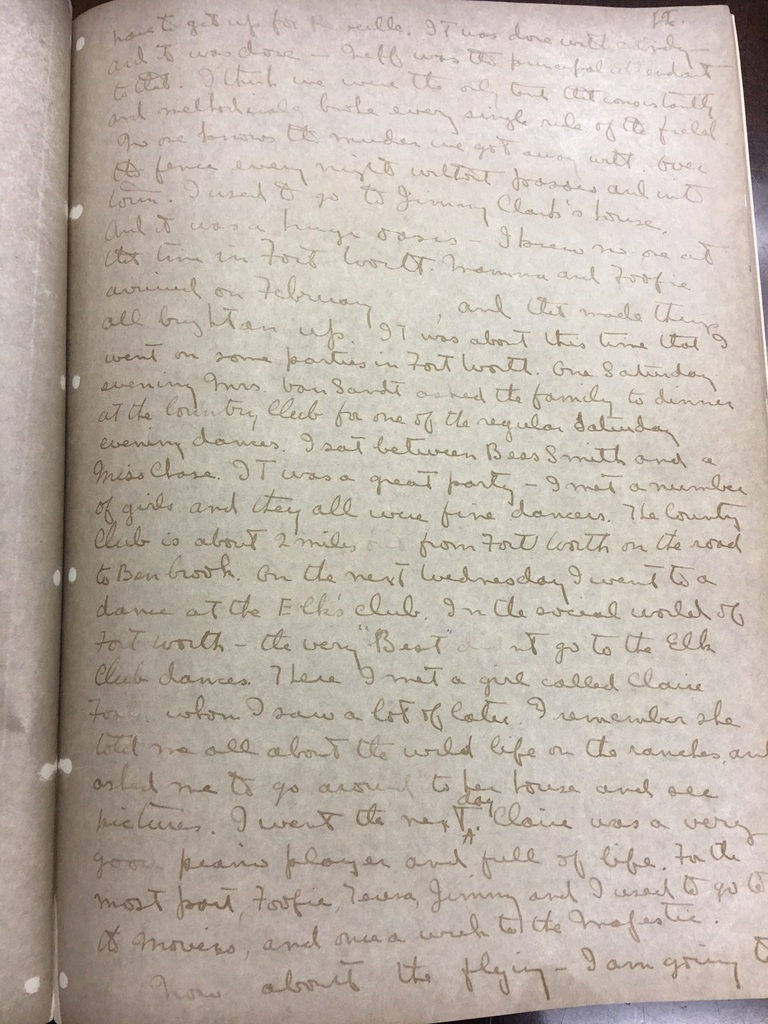 have to get up for Reveille. It was done with a body
aid it was done — Neff was the principal attendant
to that. I think we were the only tent that consistantly
and methodically broke every single rule of the field
No one knows the murder we got away with. Over
the fence every night without passes and into
town. I used to go to Jimmy Clark's house.
And it was a huge oasis — I knew no one at
the time in Fort Worth. Mamma and Foofie
arrived on February , and that made things
all brighten up. IT was about this time that I
went on some parties in Fort Worth. One Saturday
evening Mrs. Van Sandt asked the family to dinner
at the Country Club for one of the regular Saturday
evening dances. I sat between Bess Smith and a
Miss Chase. IT was a great party — I met a number
of girls and they all were fine dancers. The Country
Club is about 2 miles out from Fort Worth on the road
to Benbrook. On the next Wednesday I went to a
dance at the Elk's club. In the social world of
Fort Worth — the very "Best" didn't go to the Elk
Club dances. There I met a girl called Claire
whom I saw a lot of later. I remember she
told me all about the wild life on the ranches, and
asked me to go around to her house and see
pictures. I went the next day. Claire was a very
good piano player and full of life. For the
most part, Foofie, Teresa, Jimmy and I used to go to
the movies, and once a week to the Majestic.
Now about the flying — I am going to